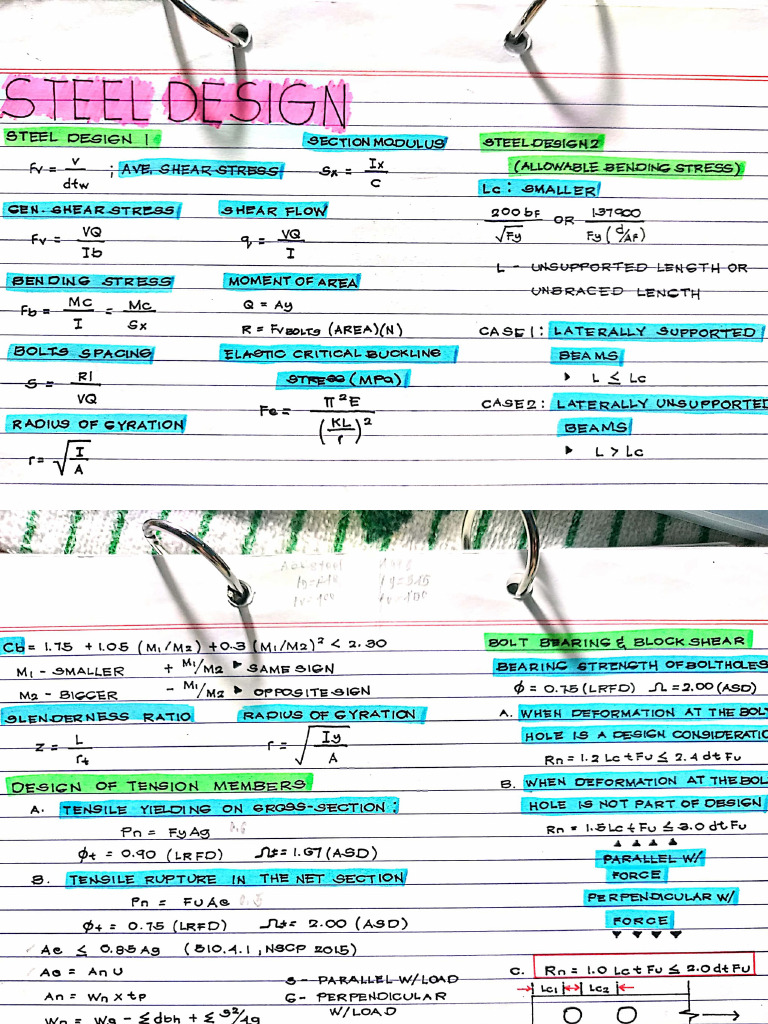 STEEL DESIGN
STEEL DESIGN 1
Fv = V/dtw ; AVE. SHEAR STRESS
SECTION MODULUS
Sx = Ix/C
GEN. SHEAR STRESS
Fv = VQ/Ib
SHEAR FLOW
q = VQ/I
BENDING STRESS
Fb = MC/I = MC/Sx
MOMENT OF AREA
Q = Ay
R = FvBOLTS (AREA)(N)
BOLTS SPACING
S = RI/VQ
ELASTIC CRITICAL BUCKLING
STRESS (MPa)
Fe = π²E/(KL/r)²
RADIUS OF GYRATION
r = √(I/A)
STEEL DESIGN 2
(ALLOWABLE BENDING STRESS)
Lc : SMALLER
200bf/√Fy OR 137900/Fy(d/AF)
L - UNSUPPORTED LENGTH OR
UNBRACED LENGTH
CASE 1 : LATERALLY SUPPORTED
BEAMS
▸ L ≤ Lc
CASE 2 : LATERALLY UNSUPPORTED
BEAMS
▸ L > Lc
Cb = 1.75 + 1.05 (M1/M2) + 0.3 (M1/M2)² < 2.30
M1 - SMALLER + M1/M2 ▸ SAME SIGN
M2 - BIGGER - M1/M2 ▸ OPPOSITE SIGN
SLENDERNESS RATIO
Z = L/rt
RADIUS OF GYRATION
r = √(Iy/A)
DESIGN OF TENSION MEMBERS
A. TENSILE YIELDING ON GROSS-SECTION :
Pn = FyAg
ϕt = 0.90 (LRFD) Ωt = 1.67 (ASD)
B. TENSILE RUPTURE IN THE NET SECTION
Pn = FuAe
ϕt = 0.75 (LRFD) Ωt = 2.00 (ASD)
Ae ≤ 0.85Ag (510.4.1, NSCP 2015)
Ae = AnU
An = Wn x tp
Wn = Wg - Σdbh + Σs²/4g
S - PARALLEL W/LOAD
G - PERPENDICULAR
W/LOAD
BOLT BEARING & BLOCK SHEAR
BEARING STRENGTH OF BOLTHOLES
ϕ = 0.75 (LRFD) Ω = 2.00 (ASD)
A. WHEN DEFORMATION AT THE BOLT
HOLE IS A DESIGN CONSIDERATIO
Rn = 1.2 Lc t Fu ≤ 2.4 dt Fu
B. WHEN DEFORMATION AT THE BOL
HOLE IS NOT PART OF DESIGN
Rn = 1.5 Lc t Fu ≤ 3.0 dt Fu
PARALLEL W/
FORCE
PERPENDICULAR W/
FORCE
C. Rn = 1.0 Lc t Fu ≤ 2.0 dt Fu
Lc1 Lc2